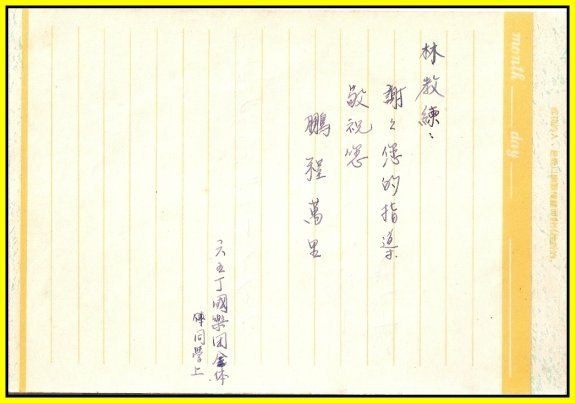 林教練：
謝々您的指導
敬祝您
鵬程萬里
六五丁國樂团全体
同學上
month
day